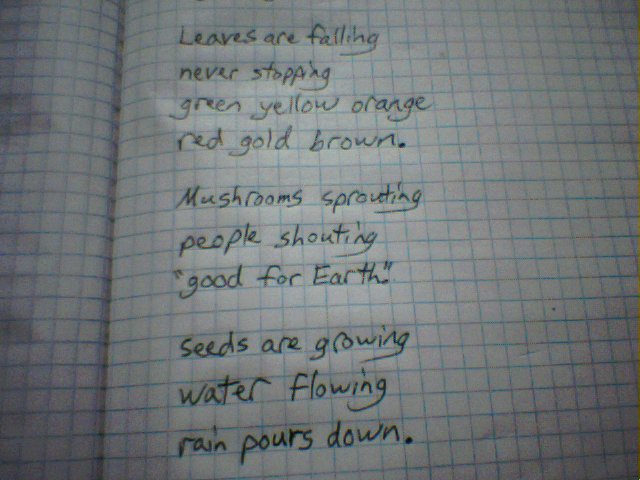 Leaves are falling
never stopping
green yellow orange
red gold brown.
Mushrooms sprouting
people shouting
"good for Earth."
seeds are growing
water flowing
rain pours down.